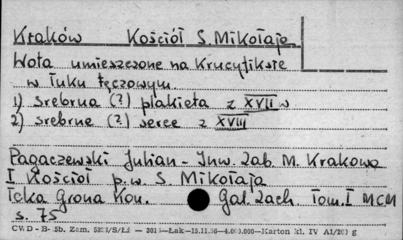 Kraków Kościół S. Mikołaja
Wota umieszczone na Krucyfiksie
w łuku tęczowym.
1) srebrna (?) plakieta z XVII w
2) srebrne (?) serce z XVIII
Pagaczewski Julian - Inw. Zab. M. Krakowa
I Kościół p.w. S Mikołaja
Teka Grona Kon. Gal. Zach. Tom. I MCM
s. 75
CWD - B-5b. Zam. Łak - 15.11.56 - 4.000.000 - Karton kl. IV A1/200 g